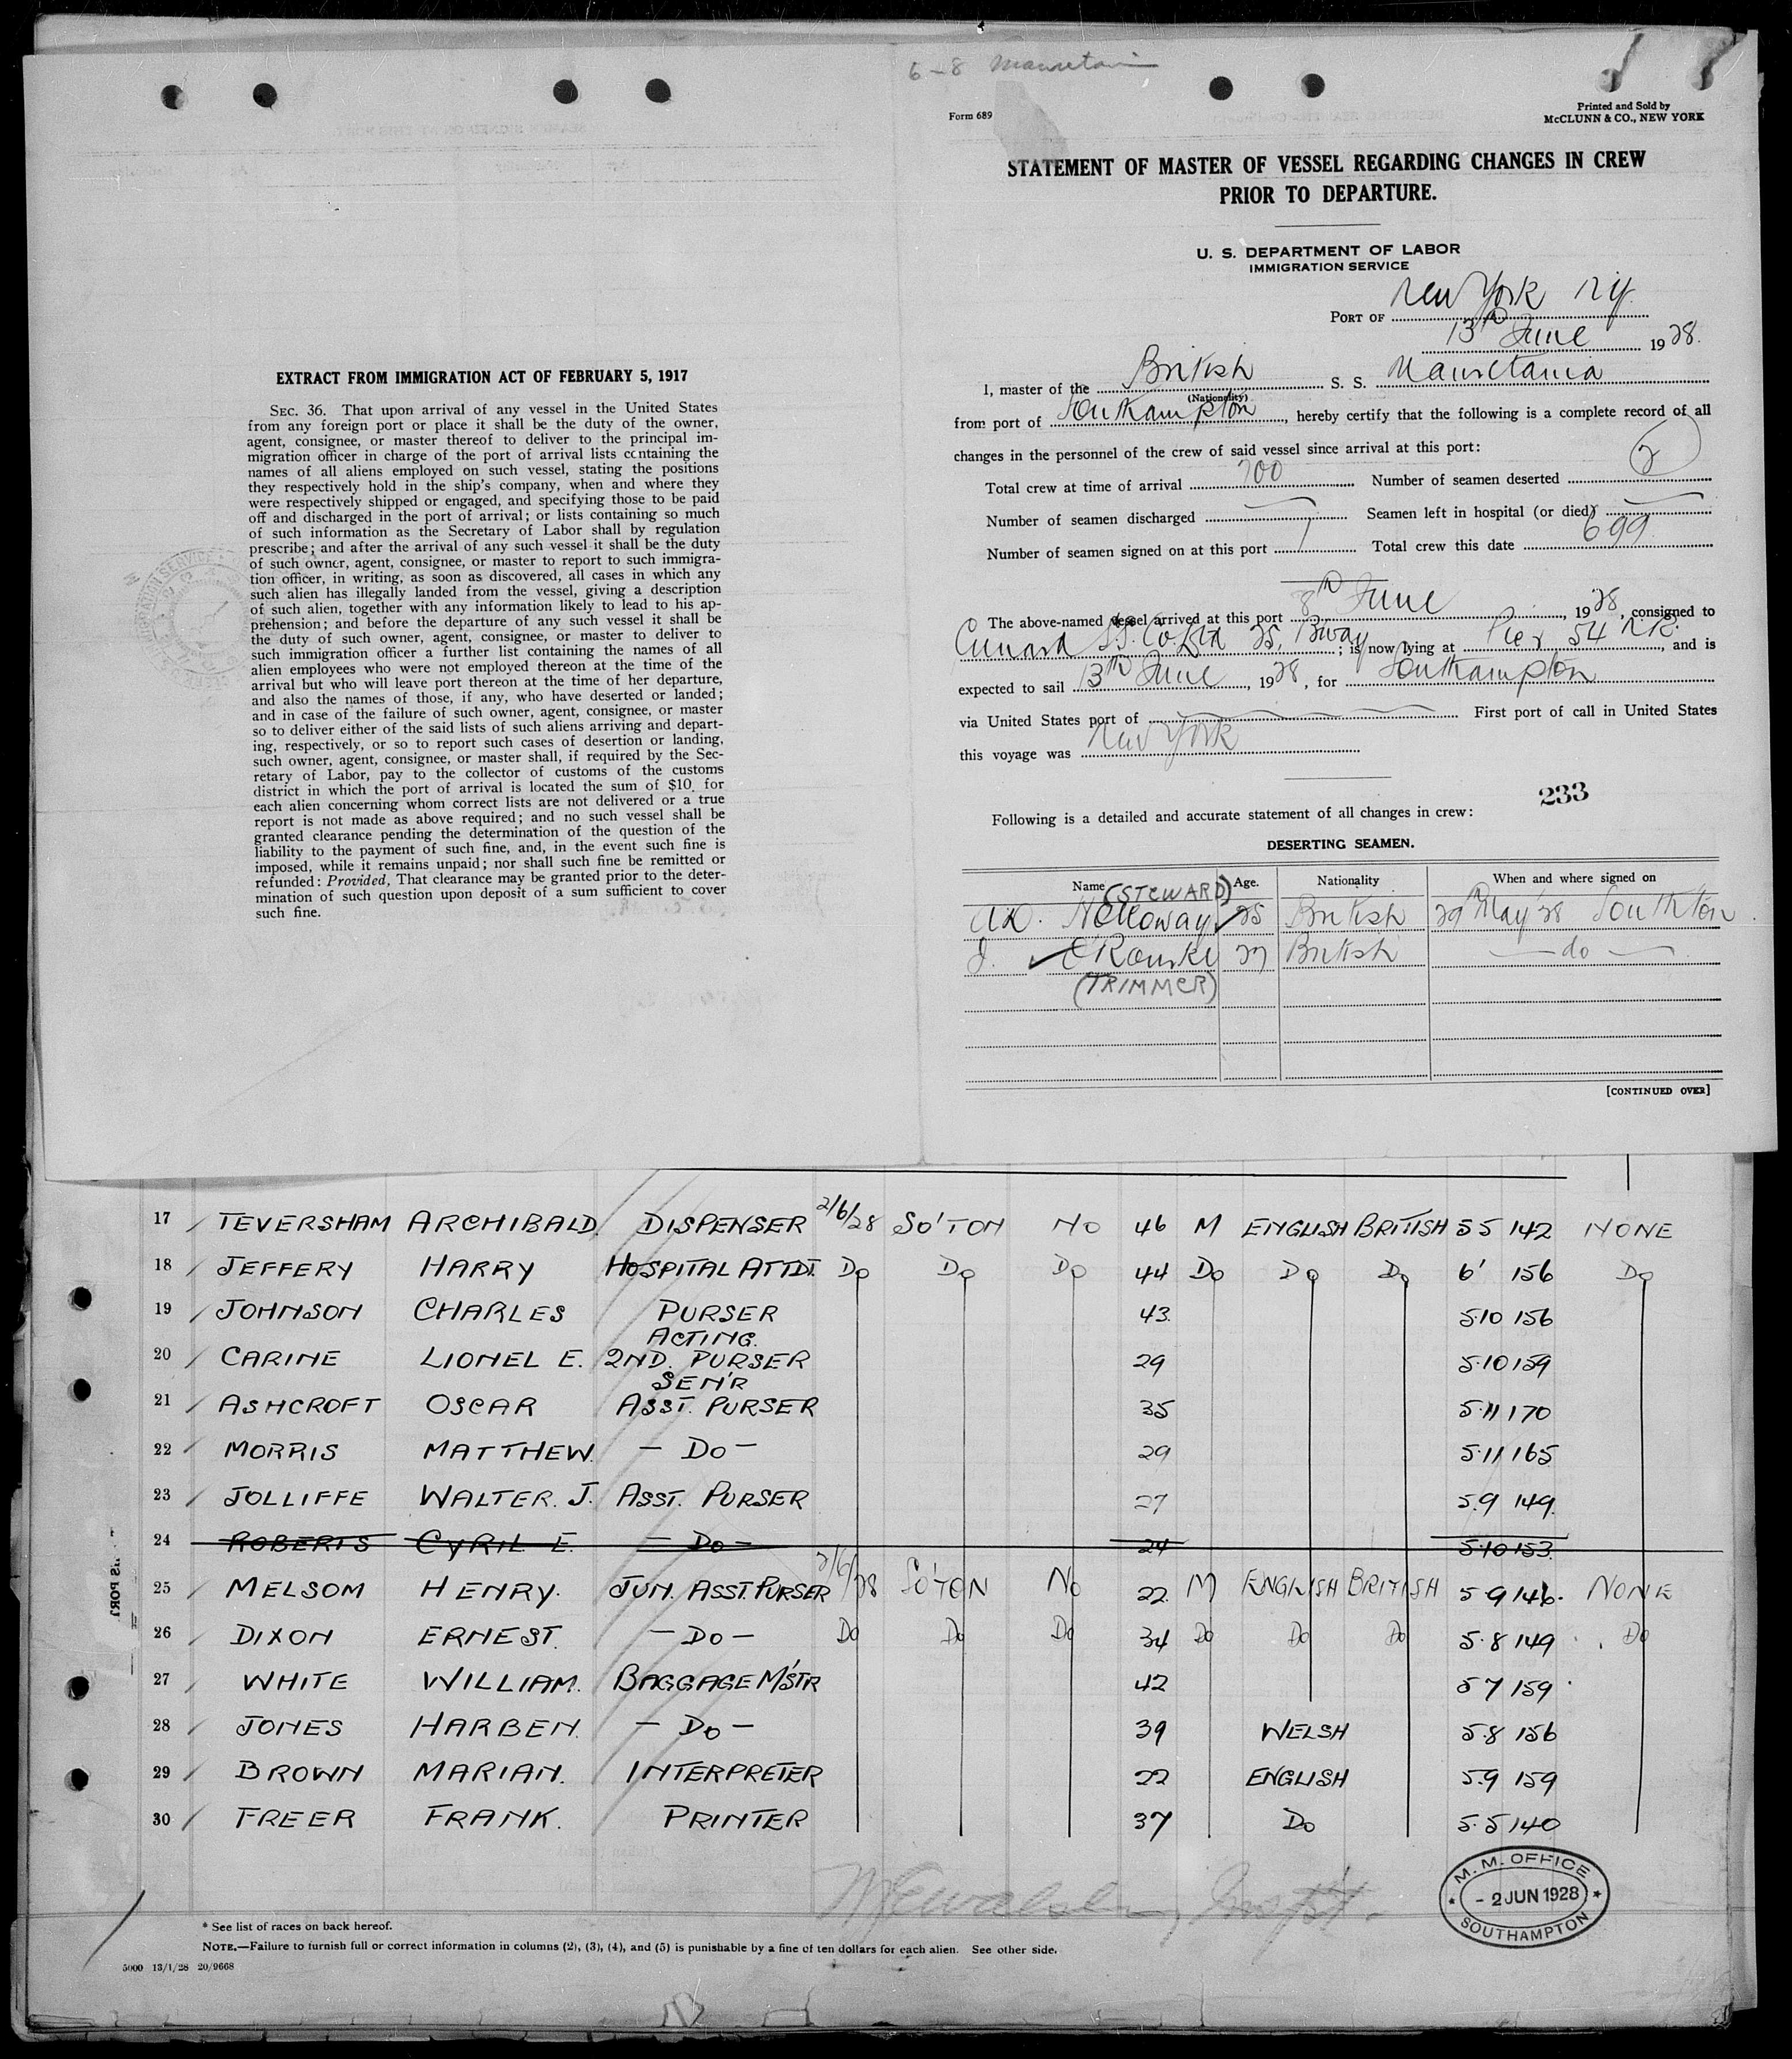 EXTRACT FROM IMMIGRATION ACT OF FEBRUARY 5, 1917
SEC. 36. That upon arrival of any vessel in the United States
from any foreign port or place it shall be the duty of the owner,
agent, consignee, or master thereof to deliver to the principal im-
migration officer in charge of the port of arrival lists containing the
names of all aliens employed on such vessel, stating the positions
they respectively hold in the ship's company, when and where they
were respectively shipped or engaged, and specifying those to be paid
off and discharged in the port of arrival; or lists containing so much
of such information as the Secretary of Labor shall by regulation
prescribe; and after the arrival of any such vessel it shall be the duty
of such owner, agent, consignee, or master to report to such immigra-
tion officer, in writing, as soon as discovered, all cases in which any
such alien has illegally landed from the vessel, giving a description
of such alien, together with any information likely to lead to his ap-
prehension; and before the departure of any such vessel it shall be
the duty of such owner, agent, consignee, or master to deliver to
such immigration officer a further list containing the names of all
alien employees who were not employed thereon at the time of the
arrival but who will leave port thereon at the time of her departure,
and also the names of those, if any, who have deserted or landed;
and in case of the failure of such owner, agent, consignee, or master
so to deliver either of the said lists of such aliens arriving and depart-
ing, respectively, or so to report such cases of desertion or landing,
such owner, agent, consignee, or master shall, if required by the Sec-
retary of Labor, pay to the collector of customs of the customs
district in which the port of arrival is located the sum of $10 for
each alien concerning whom correct lists are not delivered or a true
report is not made as above required; and no such vessel shall be
granted clearance pending the determination of the question of the
liability to the payment of such fine, and, in the event such fine is
imposed, while it remains unpaid; nor shall such fine be remitted or
refunded: Provided, That clearance may be granted prior to the deter-
mination of such question upon deposit of a sum sufficient to cover
such fine.
6-8 Mauretania
Form 689
Printed and Sold by
McCLUNN & CO., NEW YORK
STATEMENT OF MASTER OF VESSEL REGARDING CHANGES IN CREW
PRIOR TO DEPARTURE.
U. S. DEPARTMENT OF LABOR
IMMIGRATION SERVICE
PORT OF New York NY.
13th June 1928.
I, master of the British S. S. Mauretania
(Nationality)
from port of Southampton, hereby certify that the following is a complete record of all
changes in the personnel of the crew of said vessel since arrival at this port:
Total crew at time of arrival 700 Number of seamen deserted 2
Number of seamen discharged — Seamen left in hospital (or died) —
Number of seamen signed on at this port 1 Total crew this date 699
The above-named vessel arrived at this port 8th June, 1928, consigned to
Cunard S.S. Co. Ltd 25, Bway; is now lying at Pier 54 N.R., and is
expected to sail 13th June, 1928, for Southampton
via United States port of — First port of call in United States
this voyage was New York
233
Following is a detailed and accurate statement of all changes in crew:
DESERTING SEAMEN.
Name Age. Nationality When and where signed on
(STEWARD)
Holloway 25 British 29th May '28 Southton.
J. O'Rourke 27 British — do —
(TRIMMER)
[CONTINUED OVER]
17 TEVERSHAM ARCHIBALD. DISPENSER 2/6/28 SO'TON NO 46 M ENGLISH BRITISH 5 5 142 NONE
18 JEFFERY HARRY HOSPITAL ATTDT. DO DO DO 44 DO DO DO 6' 156 DO
19 JOHNSON CHARLES PURSER 43. 5·10 156
20 CARINE LIONEL E. ACTING. 2ND. PURSER 29 5·10 159
21 ASHCROFT OSCAR SEN'R ASST. PURSER 35 5·11 170
22 MORRIS MATTHEW. — DO — 29 5·11 165
23 JOLLIFFE WALTER. J. ASST. PURSER 27 5.9 149.
24 ROBERTS CYRIL E. — DO — 24 5·10 153.
25 MELSOM HENRY. JUN. ASST. PURSER 2/6/28 SO'TON NO 22. M ENGLISH BRITISH 5·9 146. NONE
26 DIXON ERNEST. — DO — DO DO DO 34 DO DO DO 5·8 149 DO
27 WHITE WILLIAM. BAGGAGE M'STR 42 5 7 159
28 JONES HARBEN. — DO — 39 WELSH 5·8 156
29 BROWN MARIAN. INTERPRETER 22 ENGLISH 5.9 159
30 FREER FRANK. PRINTER 37 DO 5·5 140
M. M. OFFICE
- 2 JUN 1928
SOUTHAMPTON
* See list of races on back hereof.
NOTE.—Failure to furnish full or correct information in columns (2), (3), (4), and (5) is punishable by a fine of ten dollars for each alien. See other side.
5000 13/1/28 20/9668